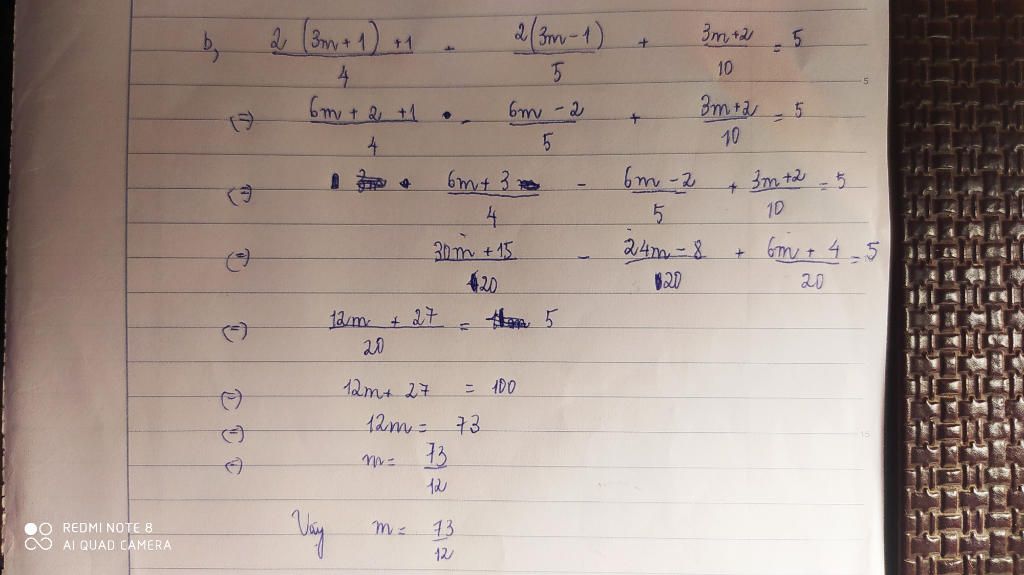 b, (2(3m+1)+1)/4 - (2(3m-1))/5 + (3m+2)/10 = 5
(=) (6m+2+1)/4 - (6m-2)/5 + (3m+2)/10 = 5
(=) (6m+3)/4 - (6m-2)/5 + (3m+2)/10 = 5
(=) (30m+15)/20 - (24m-8)/20 + (6m+4)/20 = 5
(=) (12m+27)/20 = 5
(=) 12m+27 = 100
(=) 12m = 73
(=) m = 73/12
Vậy m = 73/12
REDMI NOTE 8
AI QUAD CAMERA
5
15